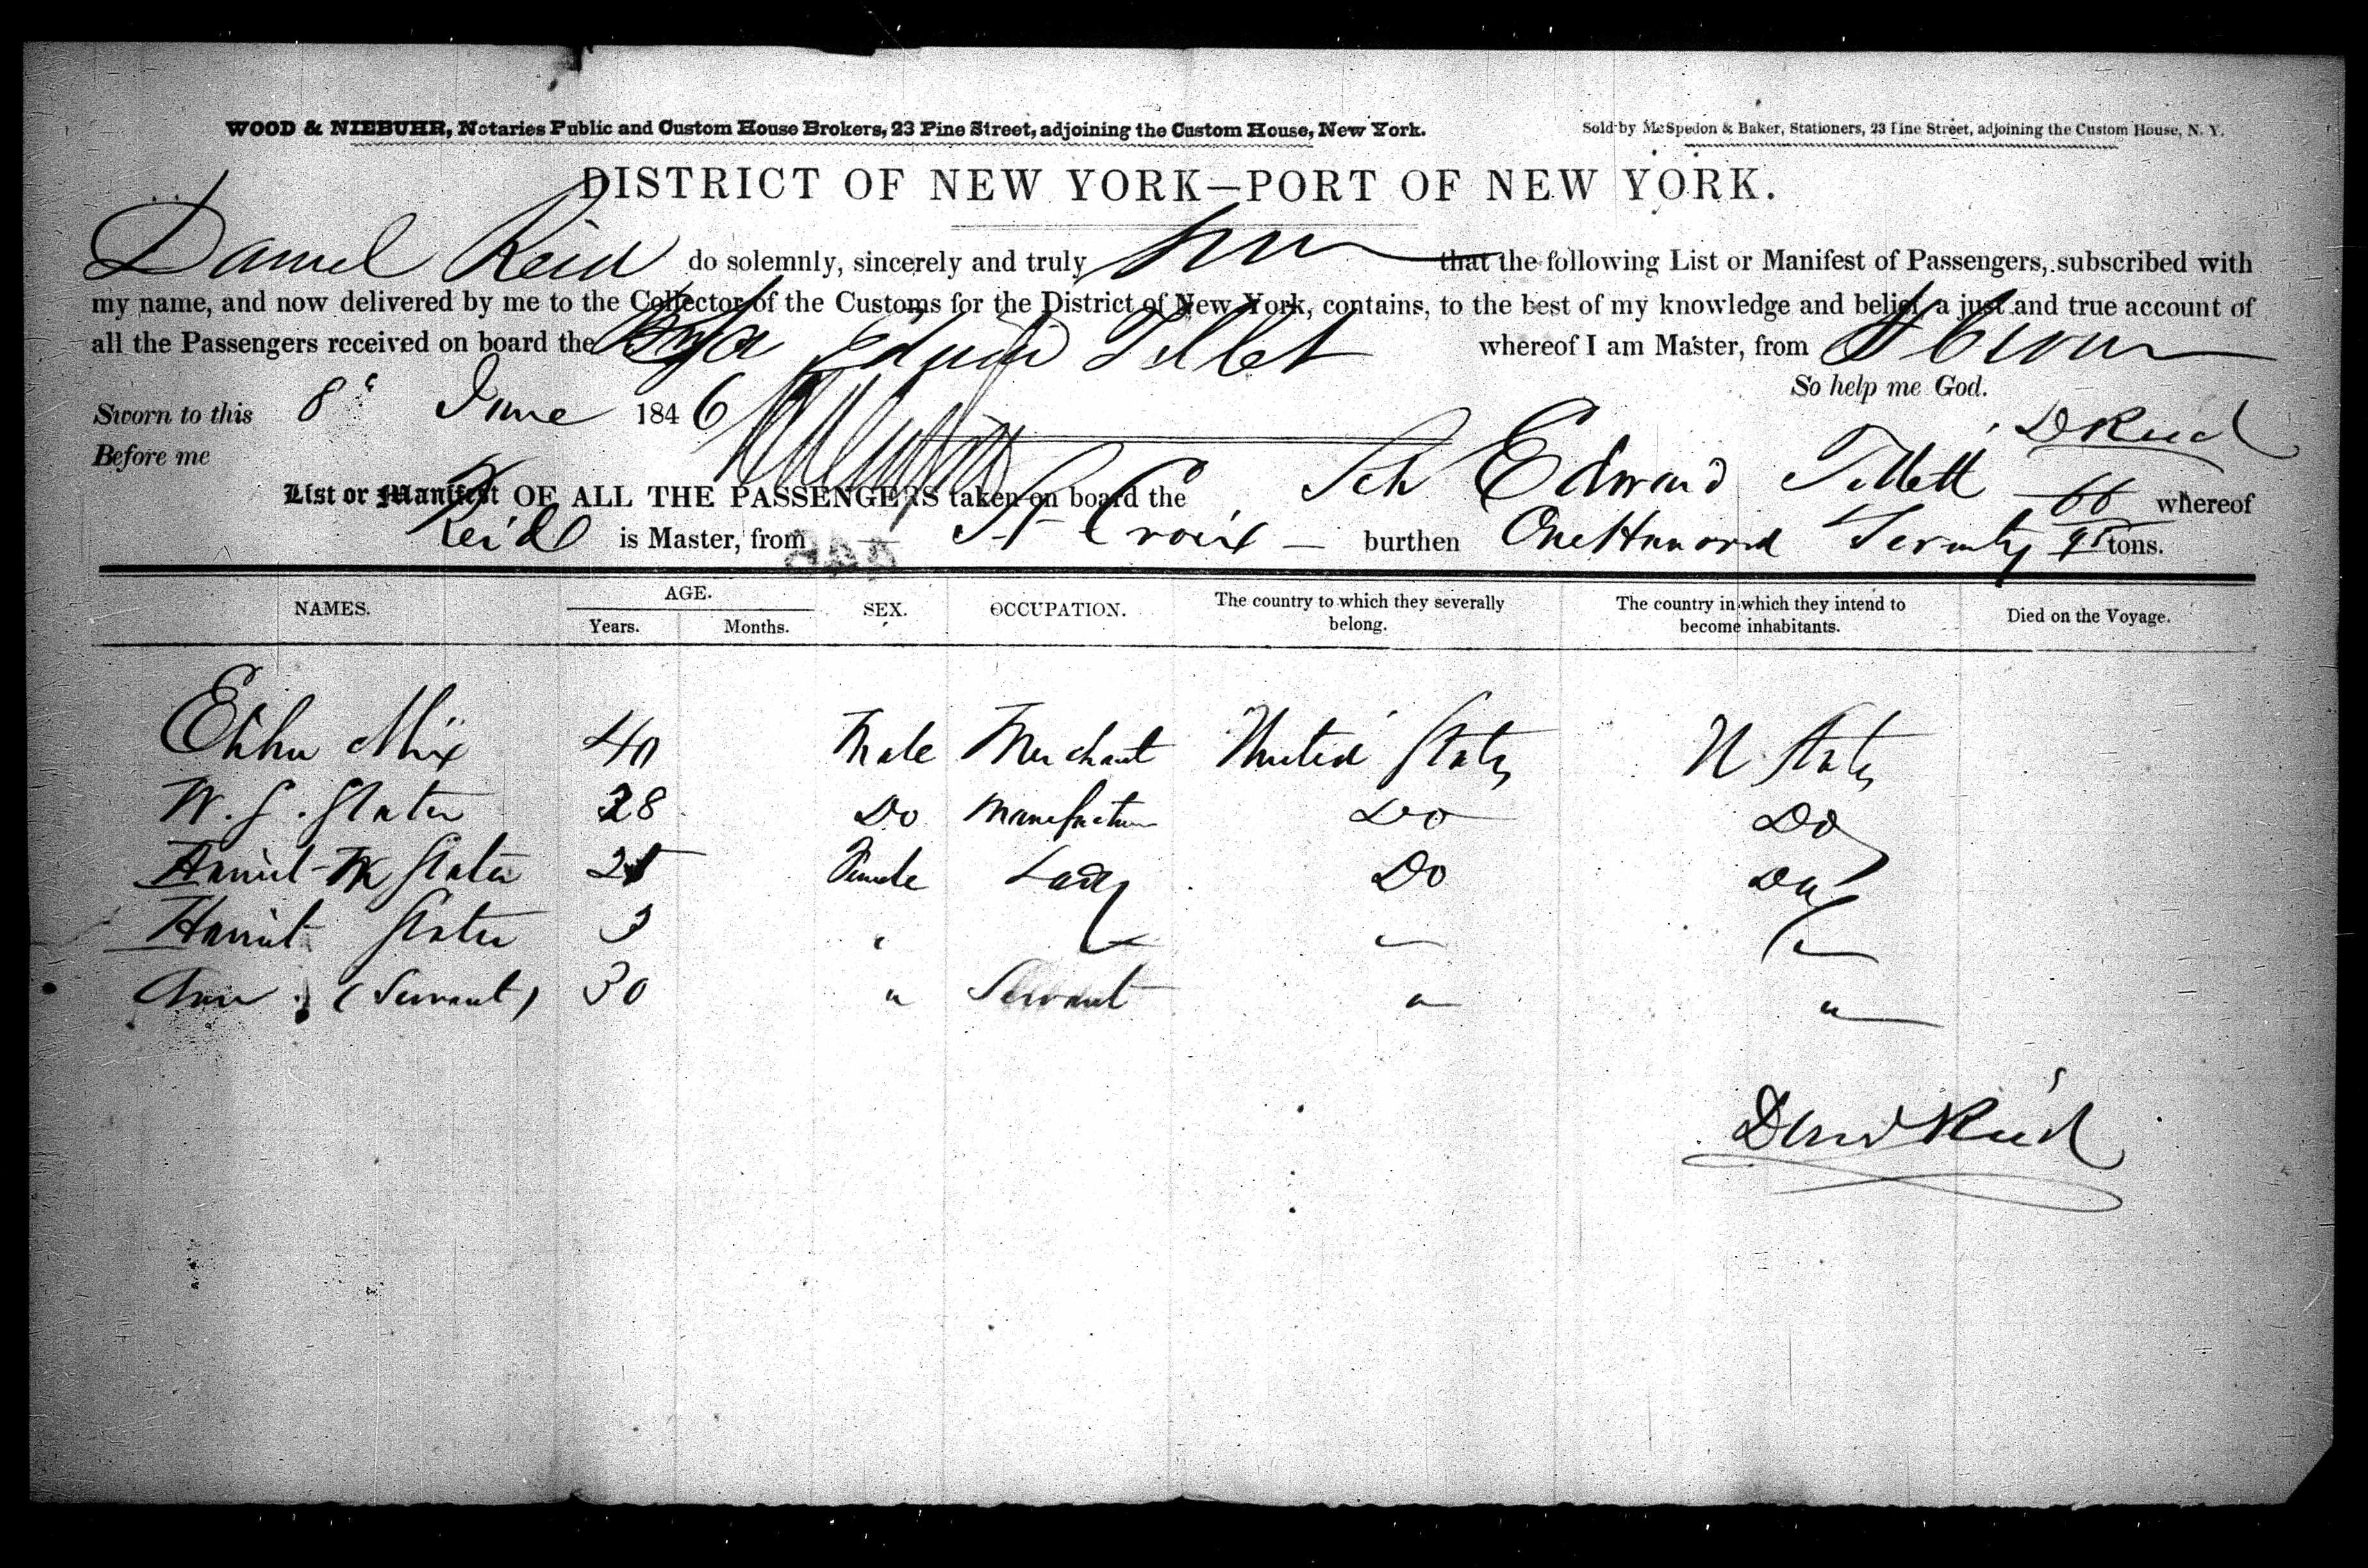 WOOD & NIEBUHR, Notaries Public and Custom House Brokers, 23 Pine Street, adjoining the Custom House, New York.
Sold by McSpedon & Baker, Stationers, 23 Pine Street, adjoining the Custom House, N. Y.
DISTRICT OF NEW YORK—PORT OF NEW YORK.
Daniel Reid do solemnly, sincerely and truly that the following List or Manifest of Passengers, subscribed with
my name, and now delivered by me to the Collector of the Customs for the District of New York, contains, to the best of my knowledge and belief, a just and true account of
all the Passengers received on board the Edward Tillet whereof I am Master, from St Croix
So help me God.
Sworn to this 8 June 1846 D Reid
Before me
List or Manifest OF ALL THE PASSENGERS taken on board the Sch Edward Tillett 66 whereof
Reid is Master, from St Croix burthen One Hundred Seventy 95 tons.
NAMES. AGE. SEX. OCCUPATION. The country to which they severally belong. The country in which they intend to become inhabitants. Died on the Voyage.
Years. Months.
Elihu Mix 40 Male Merchant United States U States
W. S. Slater 28 Do Manufacturer Do Do
Harriet M Slater 25 Female Lady Do Do
Harriet Slater 3 " " "
Ann (Servant) 30 " Servant " "
Daniel Reid